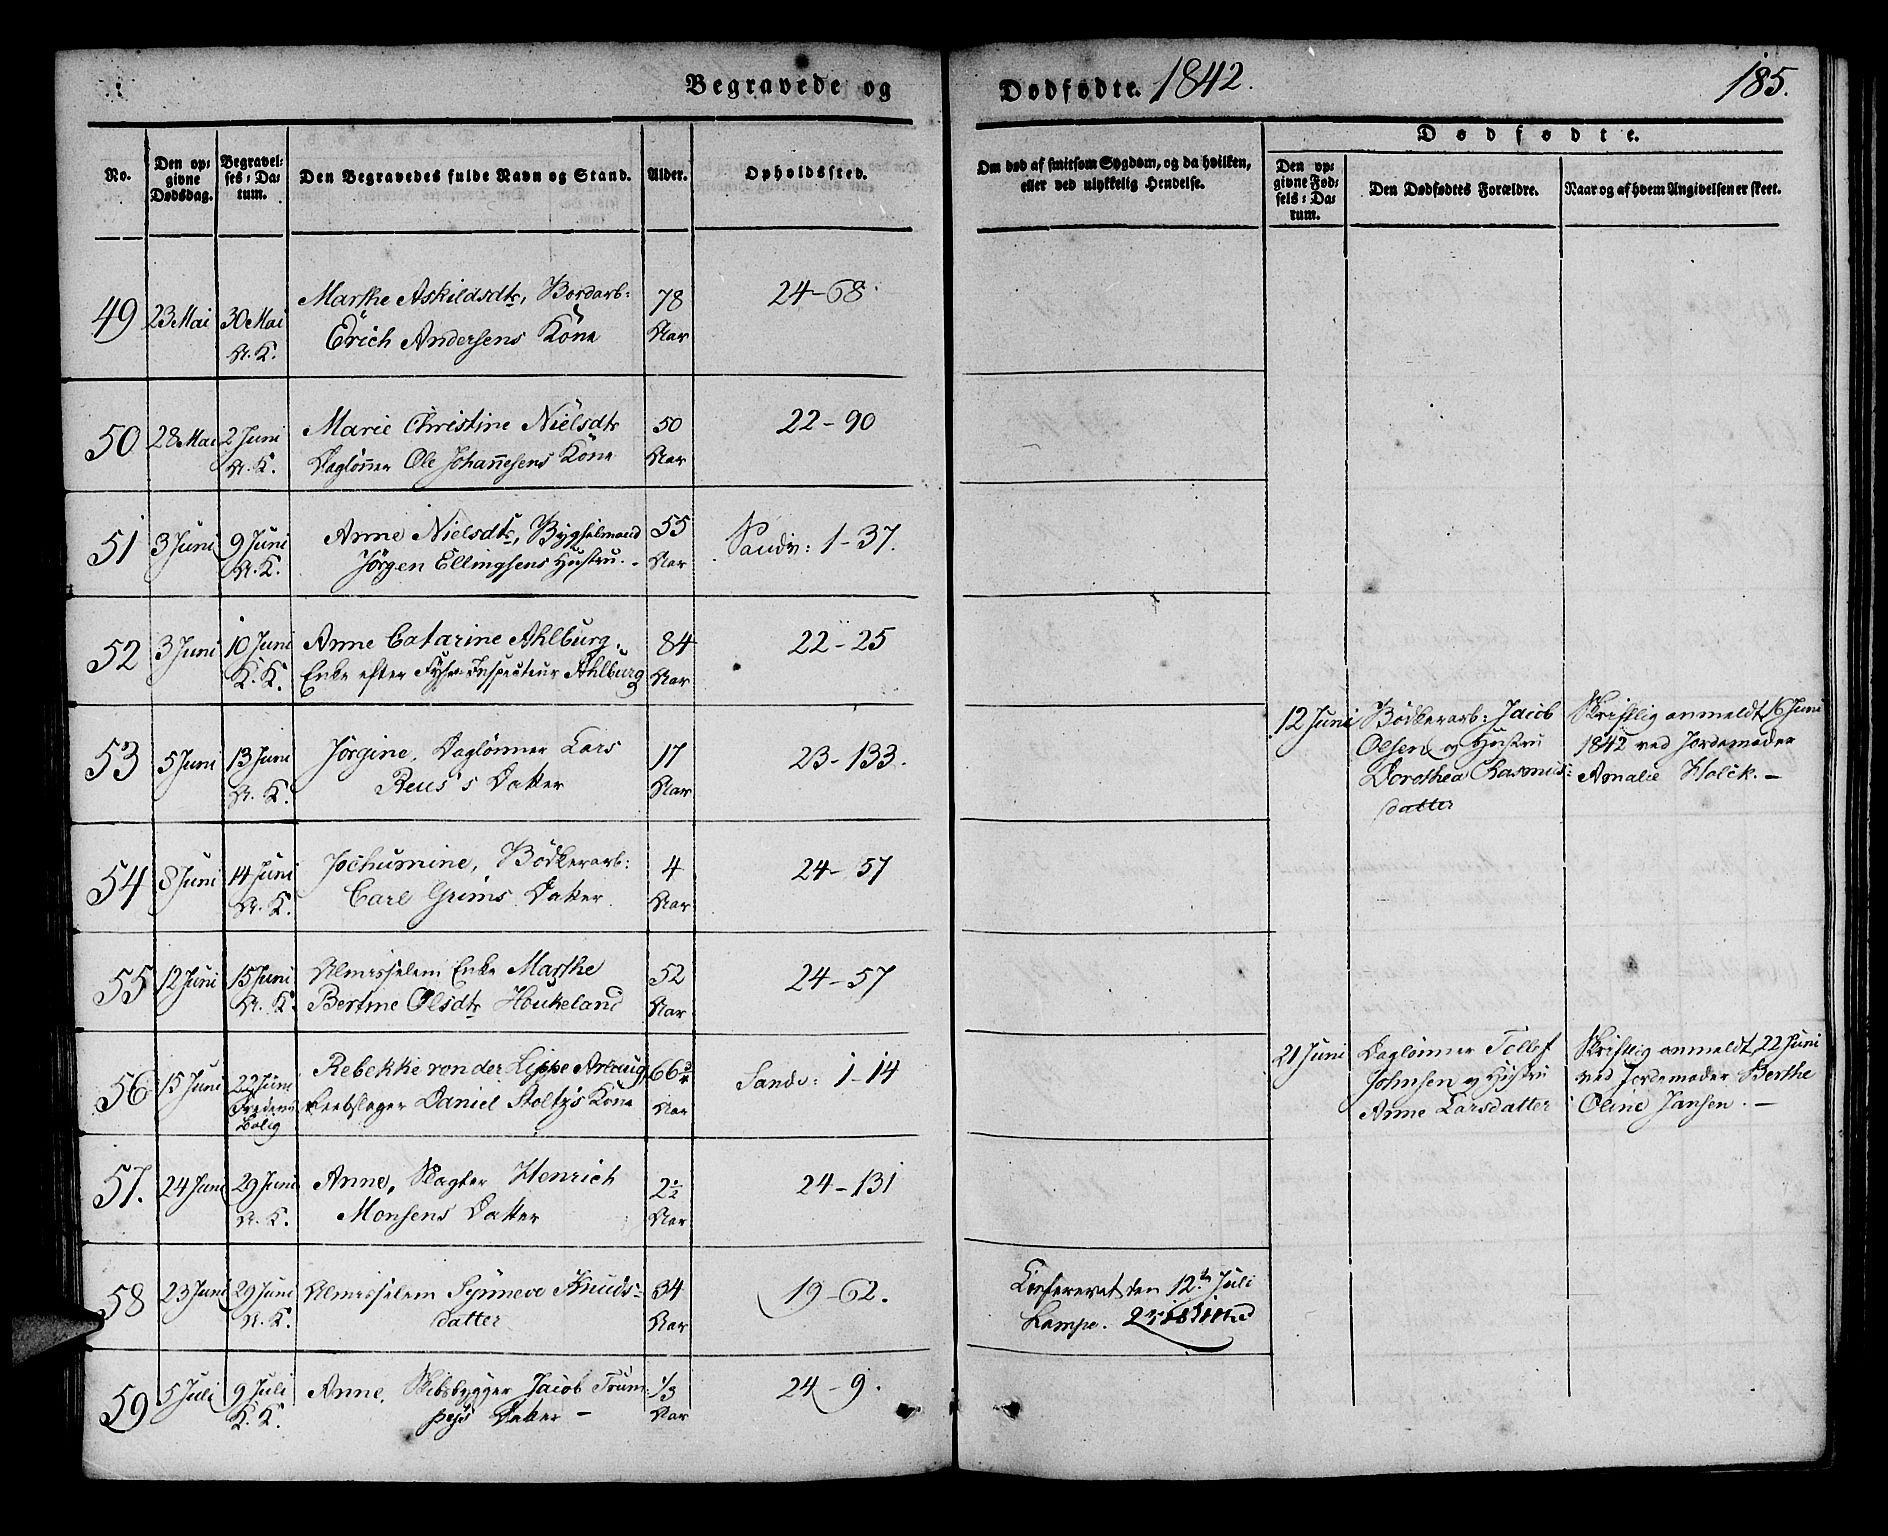 Begravede og Dødfødte. 1842. 185.
No.
Den op-
givne
Dødsdag.
Begravel-
ses-Da-
tum.
Den Begravedes fulde Navn og Stand.
Alder.
Opholdssted.
Om død af smitsom Sygdom, og da hvilken,
eller ved ulykkelig Hendelse.
Dødfødte.
Den op-
givne Fød-
sels-Da-
tum.
Den Dødfødtes Forældre.
Naar og af hvem Angivelsen er skeet.
49 23 Mai 30 Mai Marthe Askildsdtr, Bordarb: 78 24-68.
N. K. Erich Andersens Kone Aar
50 28 Mai 2 Juni Marie Christine Nielsdtr 50 22-90
N. K. Dagl̄onner Ole Johannesens Kone Aar
51 3 Juni 9 Juni Anne Nielsdtr, Bygselmand 55 Sandv: 1-37.
N. K. Jörgen Ellingsens Hustru. Aar
52 3 Juni 10 Juni Anne Catarine Ahlburg. 84 22-25
K. K. Enke efter Inspecteur Ahlburg Aar
53 5 Juni 13 Juni Jörgine, Daglönner Lars 17 23-133.
N. K. Reus's Datter Aar
12 Juni Bödkerarb: Jacob
Olsen og Hustru
Dorothea Rasmus-
datter
Skriftlig anmeldt 16 Juni
1842 ved Jordemoder
Amalie Holck. -
54 8 Juni 14 Juni Jochumine, Bödkerarb: 4 24-57
N. K. Carl Grims Datter. Aar
55 12 Juni 15 Juni Almisselem Enke Marthe 52 24-57
N. K. Bertine Olsdtr Houkeland Aar
56 15 Juni 22 Juni Rebekke von der Lippe 66 Sandv: 1-14
Fredens
Bolig Reebslager Daniel Stoltz's Kone Aar
21 Juni Daglönner Tollef
Johnsen og Hustru
Anne Larsdatter
Skriftlig anmeldt 22 Juni
ved Jordemoder Berthe
Oline Jansen. -
57. 24 Juni 29 Juni Anne, Slagter Henrich 2½ 24-131
N. K. Monsens Datter Aar
58 23 Juni 29 Juni Almisselem Synneve Knuds- 34 19-62.
N. K. datter Aar
Confereret den 12te Juli
Lampe.
59 5 Juli 9 Juli Anne, Skibsbygger Jacob Trum- 1/3 24-9.
K. K. pys Datter - Aar